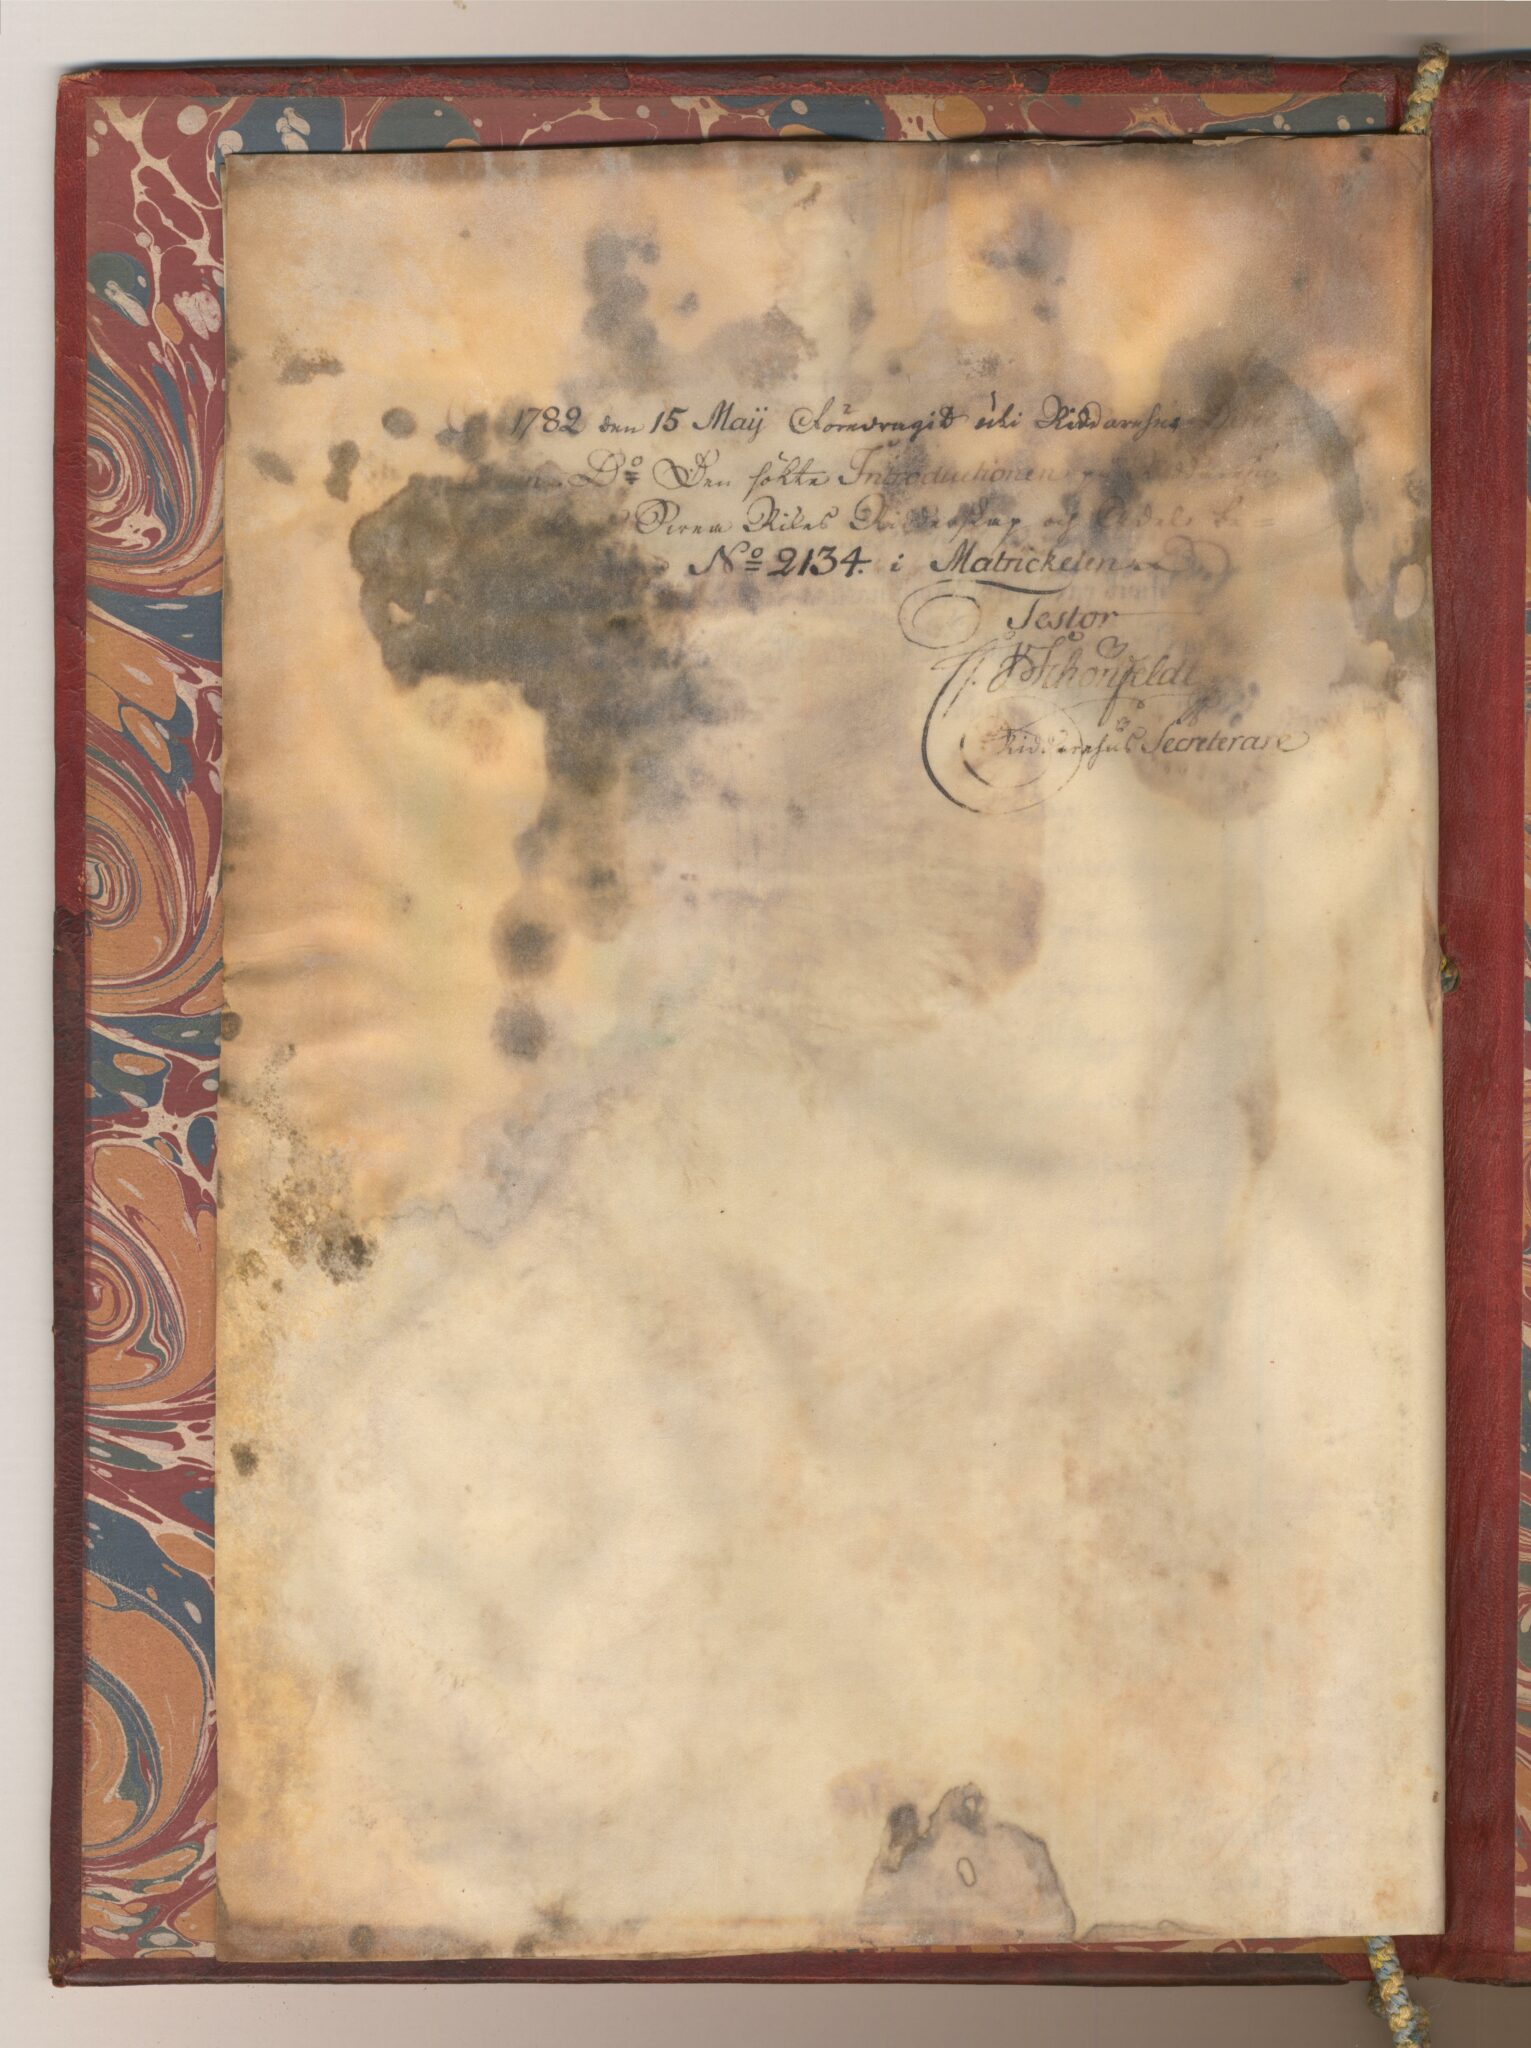 1782 den 15 Maij Föredragit uti Riddarehus
D:o Den sökte Introductionen
Svea Rikes Ridderskap och Adels
N:o 2134. i Matrickelen
Testor
Schönfeldt
Riddarehus Secreterare